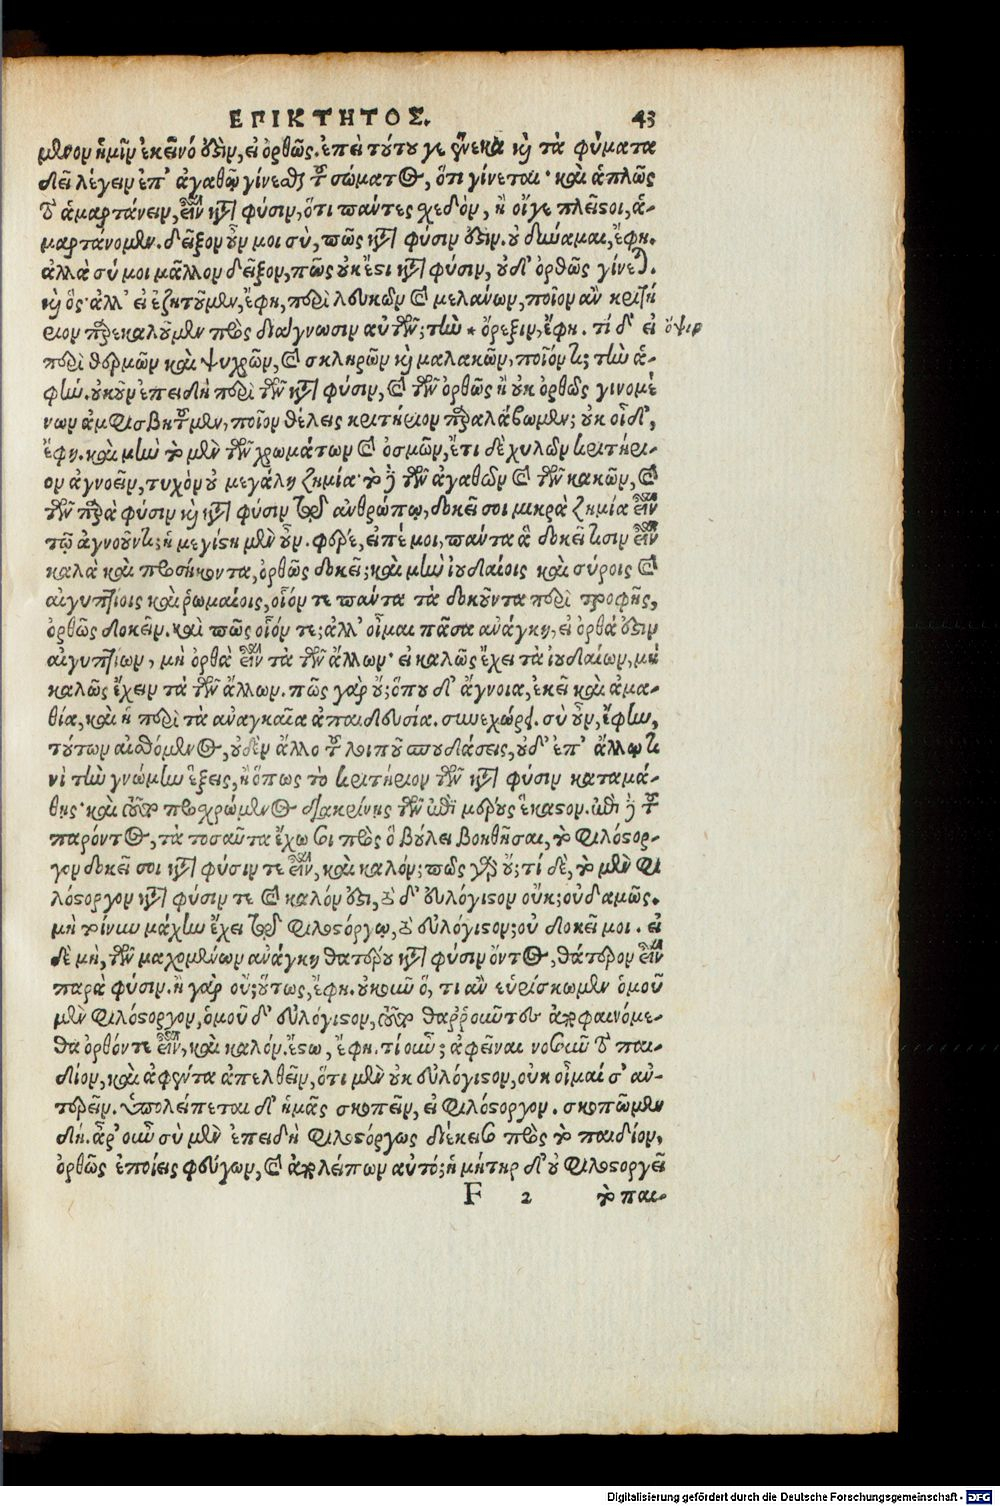 ΕΠΙΚΤΗΤΟΣ. 43
μενον ἡμῖν ἐκεῖνό ἐστιν, εἰ ὀρθῶς. ἐπεὶ τούτου γε ἕνεκα καὶ τὰ φύματα
δεῖ λέγειν ἐπ' ἀγαθῷ γίνεσθαι τοῦ σώματος, ὅτι γίνεται· καὶ ἁπλῶς
τὸ ἁμαρτάνειν, εἶναι κατὰ φύσιν, ὅτι πάντες σχεδὸν, ἢ οἵγε πλεῖστοι, ἁ-
μαρτάνομεν. δεῖξον οὖν μοι σὺ, πῶς κατὰ φύσιν ἐστιν. οὐ δύναμαι, ἔφη.
ἀλλὰ σύ μοι μᾶλλον δεῖξον, πῶς οὐκ ἔστι κατὰ φύσιν, οὐδ' ὀρθῶς γίνεται.
καὶ ὅς· ἀλλ' εἰ ἐζητοῦμεν, ἔφη, περὶ λευκῶν καὶ μελάνων, ποῖον ἂν κριτή
ριον παρεκαλοῦμεν πρὸς διάγνωσιν αὐτῶν; τὴν * ὄρεξιν, ἔφη. τί δ' εἰ ὄψιν
περὶ θερμῶν καὶ ψυχρῶν, καὶ σκληρῶν καὶ μαλακῶν, ποῖόν τι; τὴν ἁ-
φήν. οὐκοῦν ἐπειδὴ περὶ τῶν κατὰ φύσιν, καὶ τῶν ὀρθῶς ἢ οὐκ ὀρθῶς γινομέ
νων ἀμφισβητοῦμεν, ποῖον θέλεις κριτήριον παραλάβωμεν; οὐκ οἶδ',
ἔφη. καὶ μὴν τὸ μὲν τῶν χρωμάτων καὶ ὀσμῶν, ἔτι δὲ χυλῶν κριτήρι-
ον ἀγνοεῖν, τυχὸν οὐ μεγάλη ζημία· τὸ δὲ τῶν ἀγαθῶν καὶ τῶν κακῶν, καὶ
τῶν παρὰ φύσιν καὶ κατὰ φύσιν τῷ ἀνθρώπῳ, δοκεῖ σοι μικρὰ ζημία εἶναι
τῷ ἀγνοοῦντι; ἡ μεγίστη μὲν οὖν. φέρε, εἰπέ μοι, πάντα ἃ δοκεῖ τισιν εἶναι
καλὰ καὶ προσήκοντα, ὀρθῶς δοκεῖ; καὶ μὴν ἰουδαίοις καὶ σύροις καὶ
αἰγυπτίοις καὶ ῥωμαίοις, οἷόν τε πάντα τὰ δοκοῦντα περὶ τροφῆς,
ὀρθῶς δοκεῖν. καὶ πῶς οἷόν τε; ἀλλ' οἶμαι πᾶσα ἀνάγκη, εἰ ὀρθά ἐστιν
αἰγυπτίων, μὴ ὀρθὰ εἶναι τὰ τῶν ἄλλων· εἰ καλῶς ἔχει τὰ ἰουδαίων, μὴ
καλῶς ἔχειν τὰ τῶν ἄλλων. πῶς γὰρ οὔ; ὅπου δ' ἄγνοια, ἐκεῖ καὶ ἀμα-
θία, καὶ ἡ περὶ τὰ ἀναγκαῖα ἀπαιδευσία. συνεχώρει. σὺ οὖν, ἔφην,
τούτων αἰσθόμενος, οὐδὲν ἄλλο τοῦ λοιποῦ σπουδάσεις, οὐδ' ἐπ' ἄλλῳ τι
νὶ τὴν γνώμην ἕξεις, ἢ ὅπως τὸ κριτήριον τῶν κατὰ φύσιν καταμά-
θῃς· καὶ τούτῳ προχρώμενος διακρίνῃς τῶν ἐπὶ μέρους ἕκαστον. ἐπὶ δὲ τοῦ
παρόντος, τὰ τοσαῦτα ἔχω σοι πρὸς ὃ βούλει βοηθῆσαι, τὸ φιλόστορ-
γον δοκεῖ σοι κατὰ φύσιν τε εἶναι, καὶ καλόν; πῶς γὰρ οὔ; τί δὲ, τὸ μὲν φι
λόστοργον κατὰ φύσιν τε καὶ καλόν ἐστι, τὸ δ' εὐλόγιστον οὔκ; οὐδαμῶς.
μὴ τοίνυν μάχην ἔχει τῷ φιλοστόργῳ, τὸ εὐλόγιστον; οὐ δοκεῖ μοι. εἰ
δὲ μὴ, τῶν μαχομένων ἀνάγκη θατέρου κατὰ φύσιν ὄντος, θάτερον εἶναι
παρὰ φύσιν. ἢ γὰρ οὔ; οὕτως, ἔφη. οὐκοῦν ὅ, τι ἂν εὑρίσκωμεν ὁμοῦ
μὲν φιλόστοργον, ὁμοῦ δ' εὐλόγιστον, τοῦτο θαῤῥοῦντες ἀποφαινόμε-
θα ὀρθόν τε εἶναι, καὶ καλόν. ἔστω, ἔφη. τί οὖν; ἀφεῖναι νοσοῦν τὸ παι-
δίον, καὶ ἀφέντα ἀπελθεῖν, ὅτι μὲν οὐκ εὐλόγιστον, οὐκ οἶμαί σ' αὐ-
τερεῖν. ὑπολείπεται δ' ἡμᾶς σκοπεῖν, εἰ φιλόστοργον. σκοπῶμεν
δή. ἆρ' οὖν σὺ μὲν ἐπειδὴ φιλοστόργως διέκεισο πρὸς τὸ παιδίον,
ὀρθῶς ἐποίεις φεύγων, καὶ ἀπολείπων αὐτό; ἡ μήτηρ δ' οὐ φιλοστοργεῖ
F 2 τὸ παι-
Digitalisierung gefördert durch die Deutsche Forschungsgemeinschaft - DFG